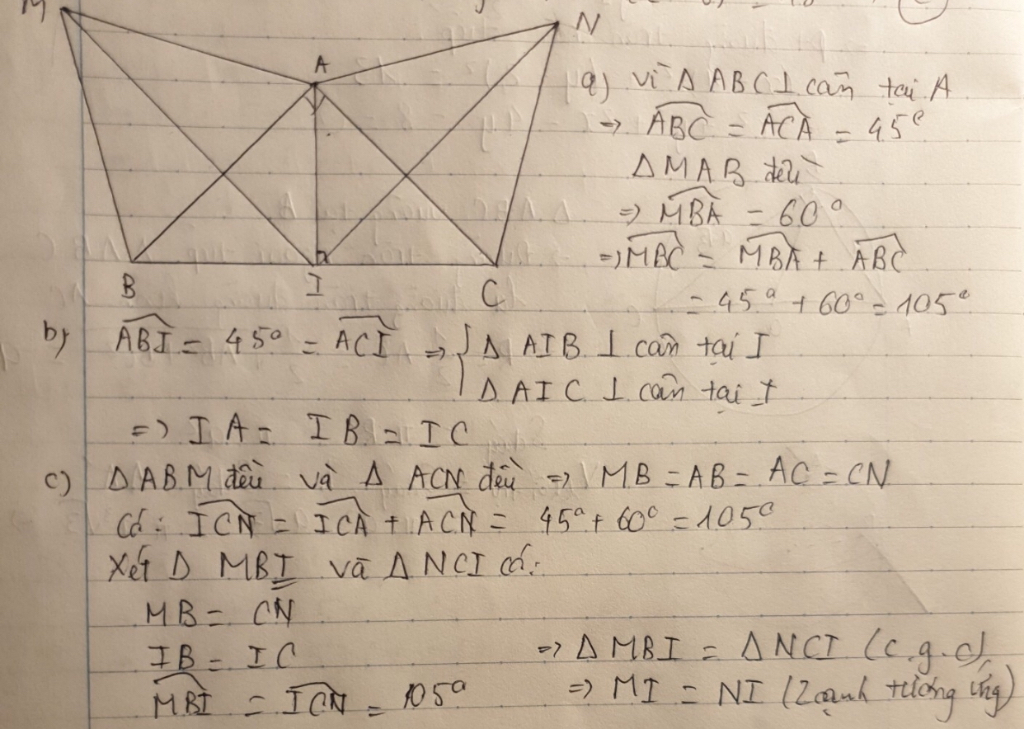 M
N
A
B
I
C
a) vì Δ ABC ⊥ cân tại A
=> ABC = ACA = 45°
Δ MAB đều
=> MBA = 60°
=> MBC = MBA + ABC
= 45° + 60° = 105°
b) ABI = 45° = ACI => { Δ AIB ⊥ cân tại I
Δ AIC ⊥ cân tại I
=> IA = IB = IC
c) Δ ABM đều và Δ ACN đều => MB = AB = AC = CN
Có: ICN = ICA + ACN = 45° + 60° = 105°
Xét Δ MBI và Δ NCI có:
MB = CN
IB = IC => Δ MBI = Δ NCI (c.g.c)
MBI = ICN = 105° => MI = NI (2 cạnh tương ứng)